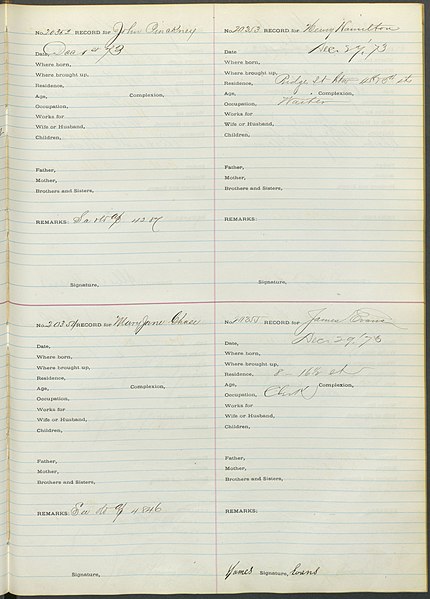 No. 20352 RECORD for John Pinckney
Date, Dec 1st 73
Where born,
Where brought up,
Residence,
Age, Complexion,
Occupation,
Works for
Wife or Husband,
Children,
Father,
Mother,
Brothers and Sisters,
REMARKS:
Signature,
No. 20353 RECORD for Henry Hamilton
Date Dec. 27, 73
Where born,
Where brought up,
Residence, Ridge St
Age, Complexion,
Occupation, Waiter
Works for
Wife or Husband,
Children,
Father,
Mother,
Brothers and Sisters,
REMARKS:
Signature,
No. 20354 RECORD for Mary Jane Chase
Date,
Where born,
Where brought up,
Residence,
Age, Complexion,
Occupation,
Works for
Wife or Husband,
Children,
Father,
Mother,
Brothers and Sisters,
REMARKS: 4846
Signature,
No. 20355 RECORD for James Evans
Date, Dec. 29, 73
Where born,
Where brought up,
Residence, 8 - 168 st
Age, Complexion,
Occupation, Clerk
Works for
Wife or Husband,
Children,
Father,
Mother,
Brothers and Sisters,
REMARKS:
James Signature, Evans